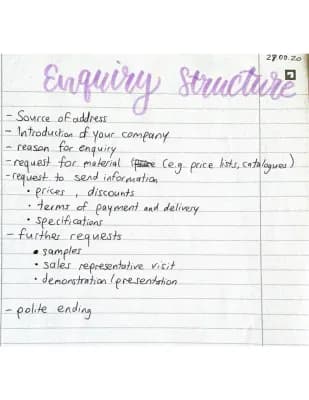 29.09.20
Enquiry Structure
- Source of address
- Introduction of your company
- reason for enquiry
- request for material (e.g. price lists, catalogues)
- request to send information
• prices, discounts
• terms of payment and delivery
• specifications
- further requests
• samples
• sales representative visit
• demonstration / presentation
- polite ending